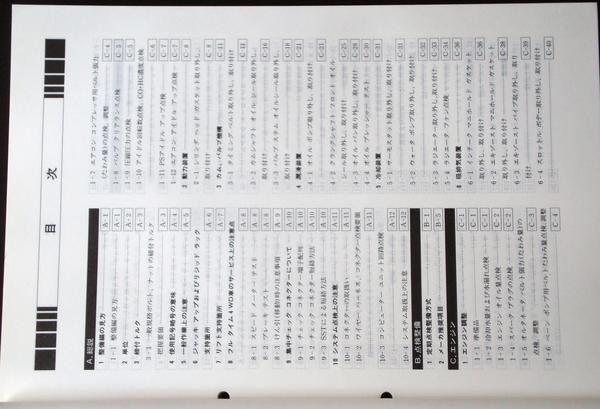 目 次
A. 総説
1 整備編の見方 A-1
1-1 整備編の見方 A-1
2 単位 A-2
3 締付トルク A-3
3-1 一般規格ボルト、ナットの締付トルク
把握要領 A-3
4 使用記号略号の意味 A-4
5 一般作業上の注意 A-5
6 ジャッキ アップおよびリジッド ラック
支持箇所 A-6
7 リフト支持箇所 A-7
8 フル タイム4WD車のサービス上の注意点
8-1 スピード メーター テスト A-8
8-2 ブレーキ テスト A-8
8-3 けん引(移動)時の注意事項 A-9
9 集中チェック コネクターについて A-10
9-1 チェック コネクター端子配列 A-10
9-2 チェック コネクター短絡方法 A-10
9-3 SSTによる短絡方法 A-11
10 システム点検上の注意 A-11
10-1 コネクターの取扱い A-11
10-2 ワイヤーハーネス、コネクター点検要領
A-11
10-3 コンピューター ユニット回路点検
A-12
10-4 システム取扱上の注意 A-12
B. 点検整備
1 定期点検整備方式 B-1
2 メーカ推奨項目 B-5
C. エンジン
1 エンジン調整 C-1
1-1 準備品 C-1
1-2 冷却水量および水漏れ点検 C-1
1-3 エンジン オイル量点検 C-2
1-4 スパーク プラグの点検 C-2
1-5 オルタネータ ベルト張力(たわみ量)の
点検、調整 C-3
1-6 ベーン ポンプ用ベルトたわみ量点検、調整
C-4
1-7 エアコン コンプレッサ用ベルト張力
(たわみ量)の点検、調整 C-4
1-8 バルブ クリアランス点検 C-5
1-9 圧縮圧力の点検 C-5
1-10 アイドル回転数点検、CO・HC濃度点検
C-6
1-11 PSアイドル アップ点検 C-7
1-12 エアコン アイドル アップ点検 C-7
2 動力装置 C-8
2-1 シリンダ ヘッド ガスケット取り外し、
取り付け C-8
3 カム、バルブ機構 C-11
3-1 タイミング ベルト取り外し、取り付け
C-11
3-2 カムシャフト オイル シール取り外し、
取り付け C-16
3-3 バルブ ステム オイルシール取り外し、
取り付け C-18
4 潤滑装置 C-21
4-1 オイル ポンプ取り外し、取り付け C-21
4-2 クランクシャフト フロント オイル
シール取り外し、取り付け C-25
4-3 オイル パン取り外し、取り付け C-28
4-4 オイル プレッシャー テスト C-30
5 冷却装置 C-31
5-1 サーモスタット取り外し、取り付け C-31
5-2 ウォータ ポンプ取り外し、取り付け C-32
5-3 ラジエーター取り外し、取り付け C-33
5-4 ラジエータ ファン点検 C-34
6 吸排気装置 C-36
6-1 インテーク マニホールド ガスケット
取り外し、取り付け C-36
6-2 エキゾースト マニホールド ガスケット
取り外し、取り付け C-38
6-3 エキゾースト パイプ取り外し、取り
付け C-39
6-4 スロットル ボデー取り外し、取り付け
C-40